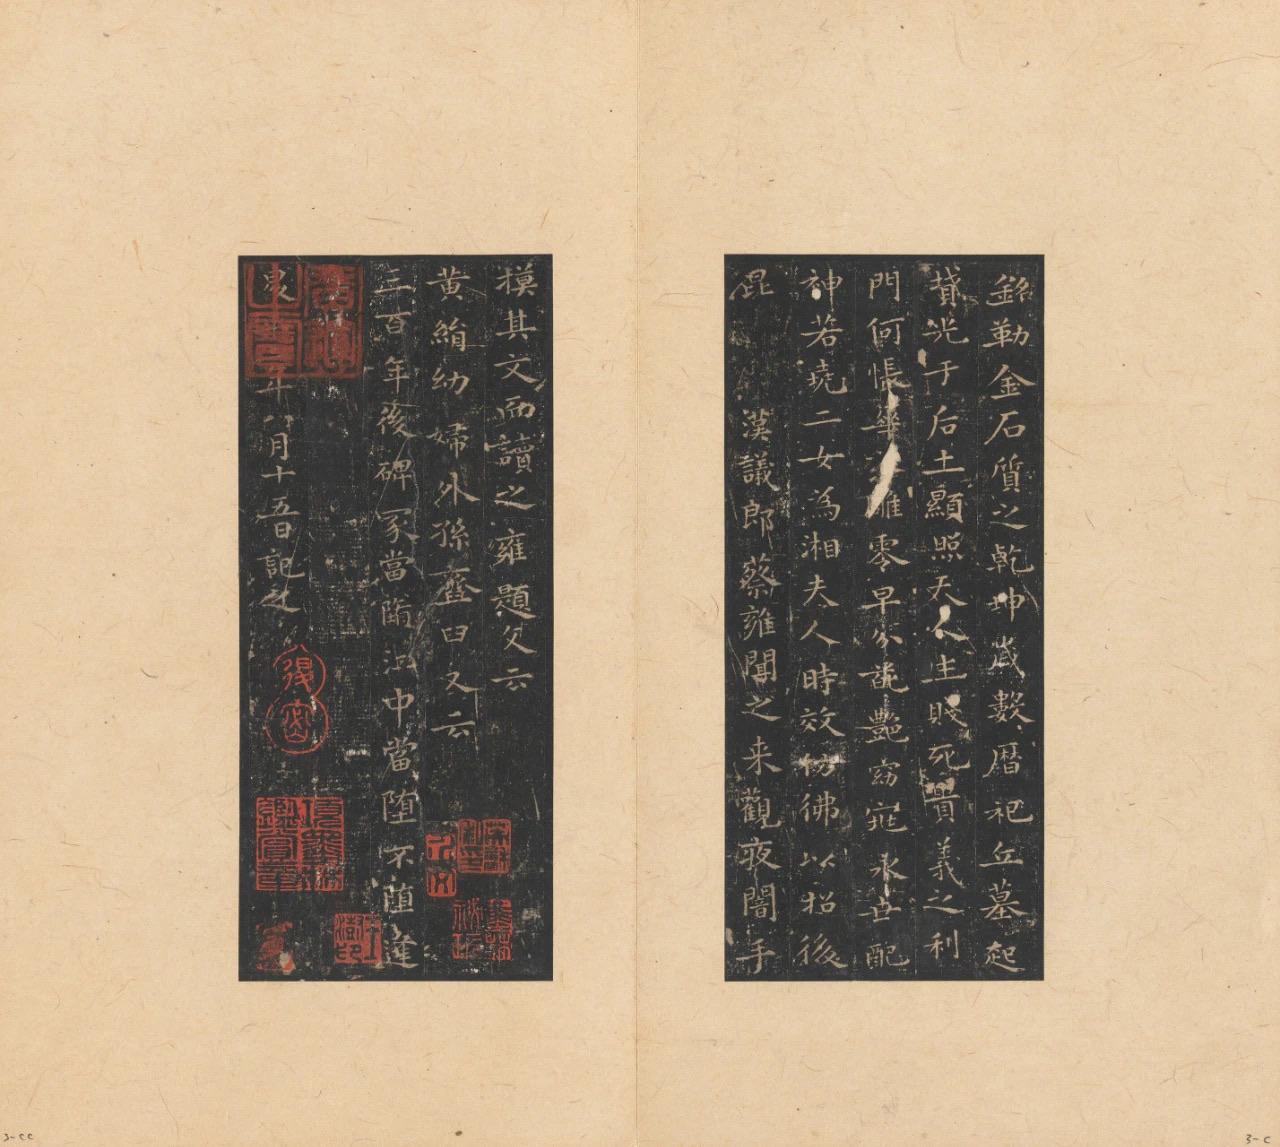 銘勒金石質之乾坤歲數曆祀丘墓起
墳光于后土顯照天人生賤死貴義之利
門何悵華落雕零早分葩艷窈窕永世配
神若堯二女為湘夫人時效仿彿以招後
昆 漢議郎蔡雍聞之来觀夜闇手
摸其文而讀之雍題文云
黃絹幼婦外孫齏臼又云
三百年後碑冢當墮江中當墮不墮逢
年八月十五日記之
3-cc
3-c